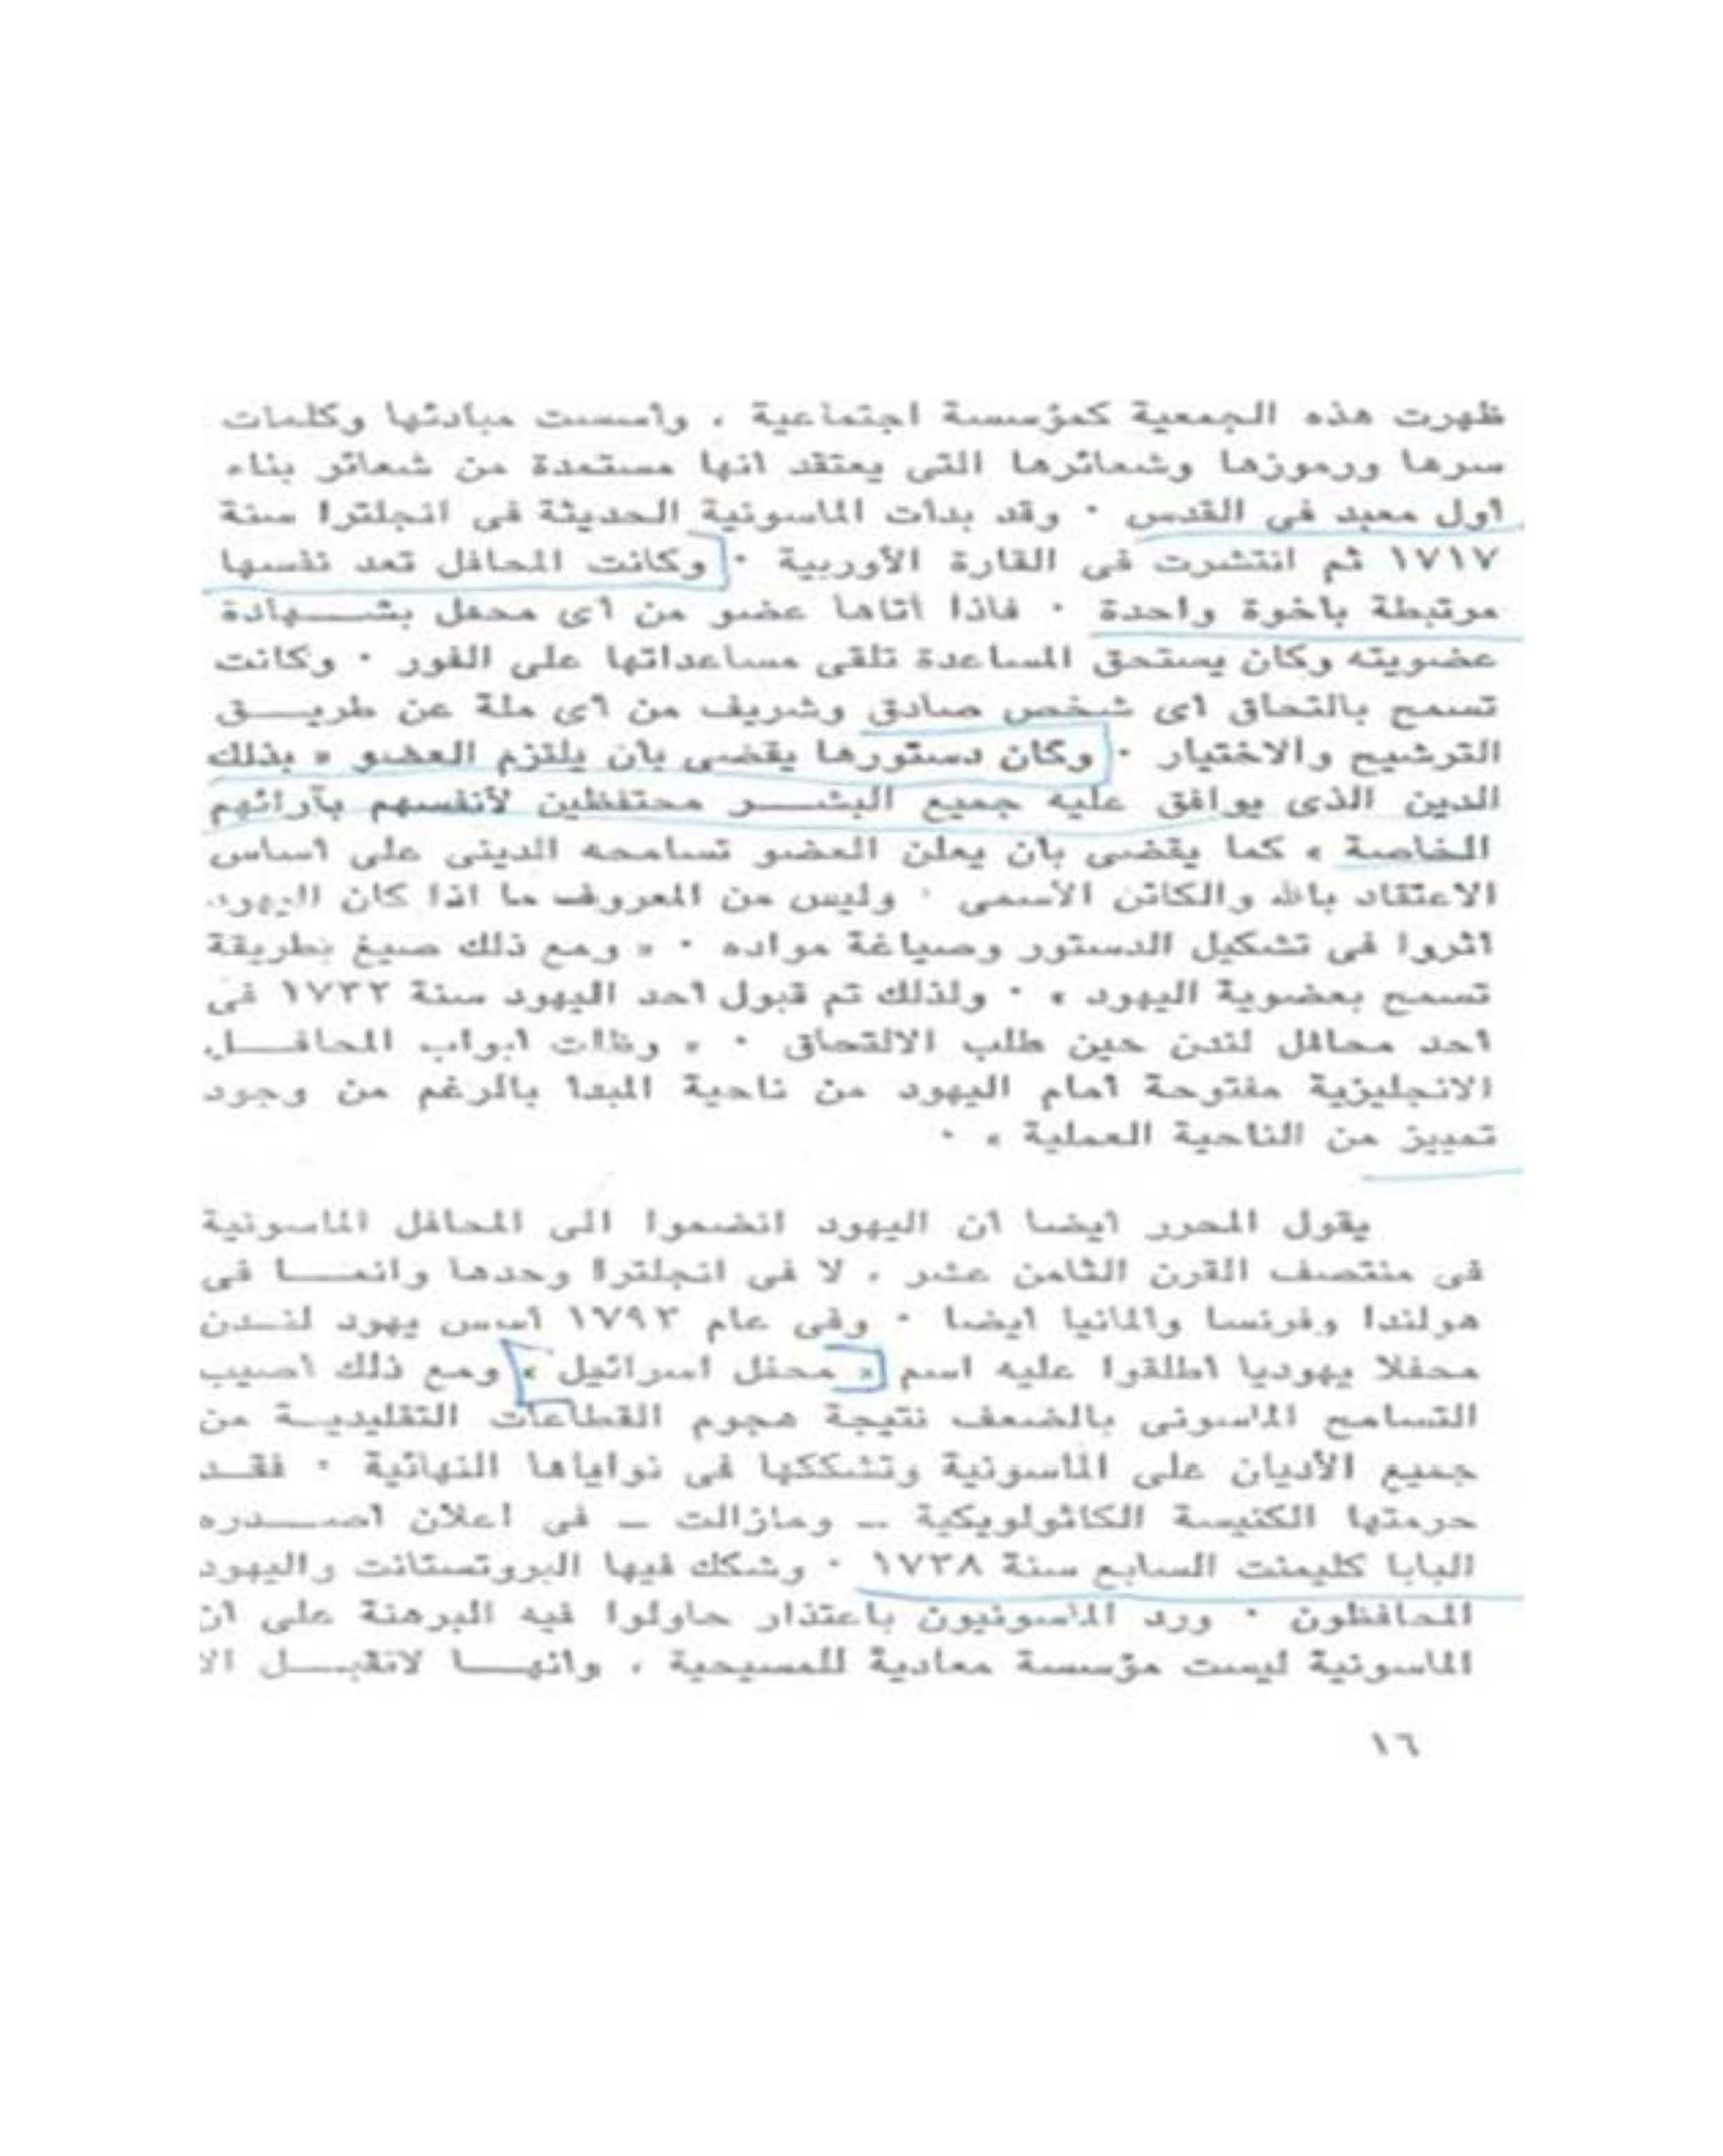 ظهرت هذه الجمعية كمؤسسة اجتماعية ، وأسست مبادئها وكلمات
سرها ورموزها وشعائرها التى يعتقد انها مستمدة من شعائر بناء
أول معبد فى القدس ٠ وقد بدأت الماسونية الحديثة فى انجلترا سنة
١٧١٧ ثم انتشرت فى القارة الأوربية ٠ وكانت المحافل تعد نفسها
مرتبطة بأخوة واحدة ٠ فاذا أتاها عضو من أى محفل بشهادة
عضويته وكان يستحق المساعدة تلقى مساعداتها على الفور ٠ وكانت
تسمح بالتحاق أى شخص صادق وشريف من أى ملة عن طريق
الترشيح والاختيار ٠ وكان دستورها يقضى بأن يلتزم العضو « بذلك
الدين الذى يوافق عليه جميع البشر محتفظين لأنفسهم بآرائهم
الخاصة » كما يقضى بأن يعلن العضو تسامحه الدينى على أساس
الاعتقاد بالله والكائن الأسمى ٠ وليس من المعروف ما اذا كان اليهود
أثروا فى تشكيل الدستور وصياغة مواده ٠ « ومع ذلك صيغ بطريقة
تسمح بعضوية اليهود » ٠ ولذلك تم قبول أحد اليهود سنة ١٧٣٢ فى
أحد محافل لندن حين طلب الالتحاق ٠ « وظلت أبواب المحافل
الانجليزية مفتوحة أمام اليهود من ناحية المبدأ بالرغم من وجود
تمييز من الناحية العملية » ٠
يقول المحرر أيضا ان اليهود انضموا الى المحافل الماسونية
فى منتصف القرن الثامن عشر ، لا فى انجلترا وحدها وانما فى
هولندا وفرنسا والمانيا أيضا ٠ وفى عام ١٧٩٣ أسس يهود لندن
محفلا يهوديا أطلقوا عليه اسم « محفل اسرائيل » ومع ذلك أصيب
التسامح الماسونى بالضعف نتيجة هجوم القطاعات التقليدية من
جميع الأديان على الماسونية وتشككها فى نواياها النهائية ٠ فقد
حرمتها الكنيسة الكاثولويكية – ومازالت – فى اعلان أصدره
البابا كليمنت السابع سنة ١٧٣٨ ٠ وشكك فيها البروتستانت واليهود
المحافظون ٠ ورد الماسونيون باعتذار حاولوا فيه البرهنة على أن
الماسونية ليست مؤسسة معادية للمسيحية ، وانها لاتقبل الا
١٦